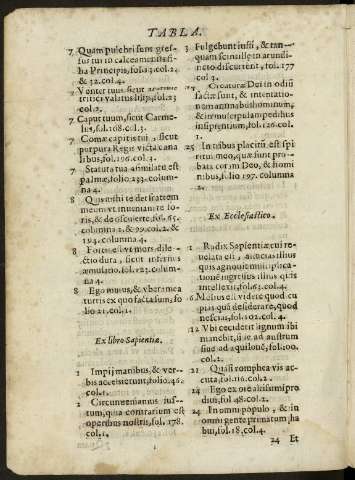 TABLA.
7 Quam pulchri sunt gres-
sus tui in calceamentis fi-
lia Principis, fol. 3. col. 2.
& 32. col. 2.
7 Venter tuus sicut acervus
tritici valatus lilijs, fol. 23
col. 2.
7 Caput tuum, sicut Carme-
lus, fol. 168. col. 3.
7 Comæ capitis tui, sicut
purpura Regis victa cana
libus, fol. 196. col. 3.
7 Statura tua assimilata est
palmæ, folio 233. colum-
na 4.
8 Quis mihi te det fratrem
meum ut inveniam te fo-
ris, & de osculer te, fol. 85.
columna 2. & 99. col. 2. &
194. columna 4.
8 Fortis est ut mors dile-
ctio dura, sicut infernus
æmulatio. fol. 123. colum-
na 4.
8 Ego murus, & vbera mea
turris ex quo facta sum, fo
lio 21. col. 1.
Ex libro Sapientiæ.
1 Impij manibus, & ver-
bis accersierunt, folio 46.
col. 1.
2 Circunveniamus ius-
tum, quia contrarium est
operibus nostris, fol. 178.
col. 1.
3 Fulgebunt iusti, & tan-
quam scintillæ in arundi-
neto discurrent, fol. 177
col. 3.
14 Creaturæ Dei in odiũ
factæ sunt, & in tentatio-
nem animabus hominum,
& in muscipulam pedibus
insipientium, fol. 126. col.
25 In tribus placitũ est spi
ritui meo, quæ sunt pro-
bata coram Deo, & homi
nibus, folio 197. columna
2.
Ex Ecclesiastico.
1 Radix Sapientiæ cui re-
velata est, & astucias illius
quis agnovit multiplica-
tionem ingressus illius quis
intellexit, fol. 63. col. 4.
6 Melius est videre quod cu
pias quã desiderare, quod
nescias, fol. 102. col. 4.
12 Vbi ceciderit lignum ibi
manebit, sive ad austrum
sive ad aquilonẽ, fol. 100.
col. 2.
21 Quasi romphea vis ac-
cuta, fol. 116. col. 2.
24 Ego ex ore altissimi pro
dius, fol. 48. col. 2.
24 In omni populo, & in
omni gente primatum ha
bui, fol. 18. col. 4.
24 Et